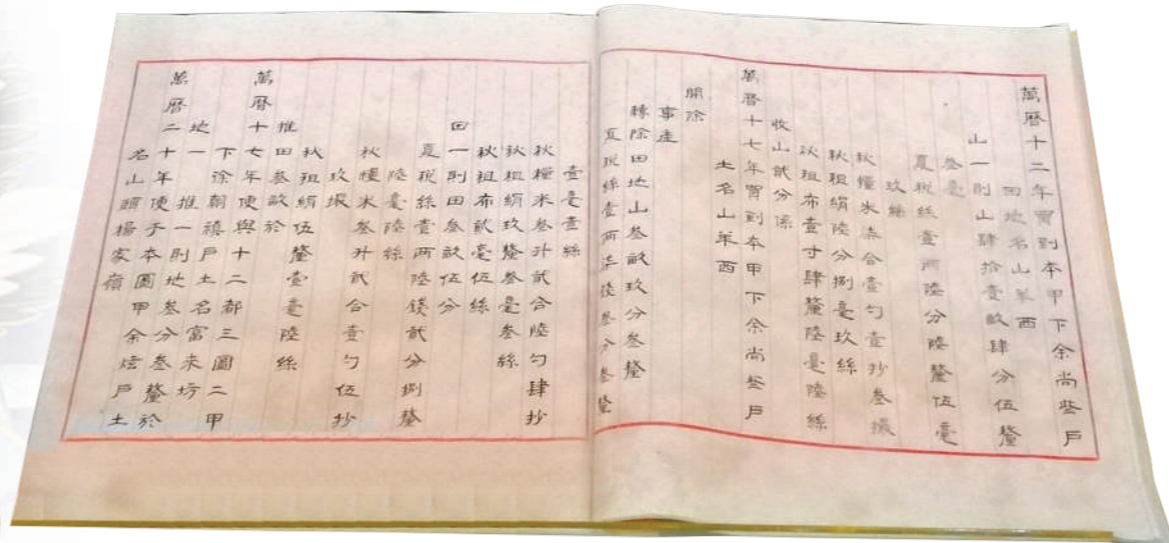 萬曆十二年買到本甲下余尚些戶
田地名山羊西
山一則山肆拾壹畝肆分伍釐
叁毫
夏稅絲壹兩陸分陸釐伍毫
玖絲
秋糧米柒合壹勺壹抄叁撮
秋租絹陸分捌毫玖絲
秋租布壹寸肆釐陸毫陸絲
收山貳分係
萬曆十七年買到本甲下余尚些戶
土名山羊西
開除
事產
轉除田地山叁畝玖分叁釐
夏稅絲壹兩柒錢叁分叁釐
壹毫壹絲
秋糧米叁升貳合陸勺肆抄
秋租絹玖釐叁毫叁絲
秋租布貳毫伍絲
田一則田叁畝伍分
夏稅絲壹兩陸錢貳分捌釐
陸毫陸絲
秋糧米叁升貳合壹勺伍抄
玖撮
秋租絹伍釐壹毫陸絲
推田叁畝於
萬曆十七年便與十二都三圖二甲
下徐朝禎戶土名富來坊
地一推一則地叁分叁釐於
萬曆二十年便于本圖甲余炫戶土
名山頭楊家嶺